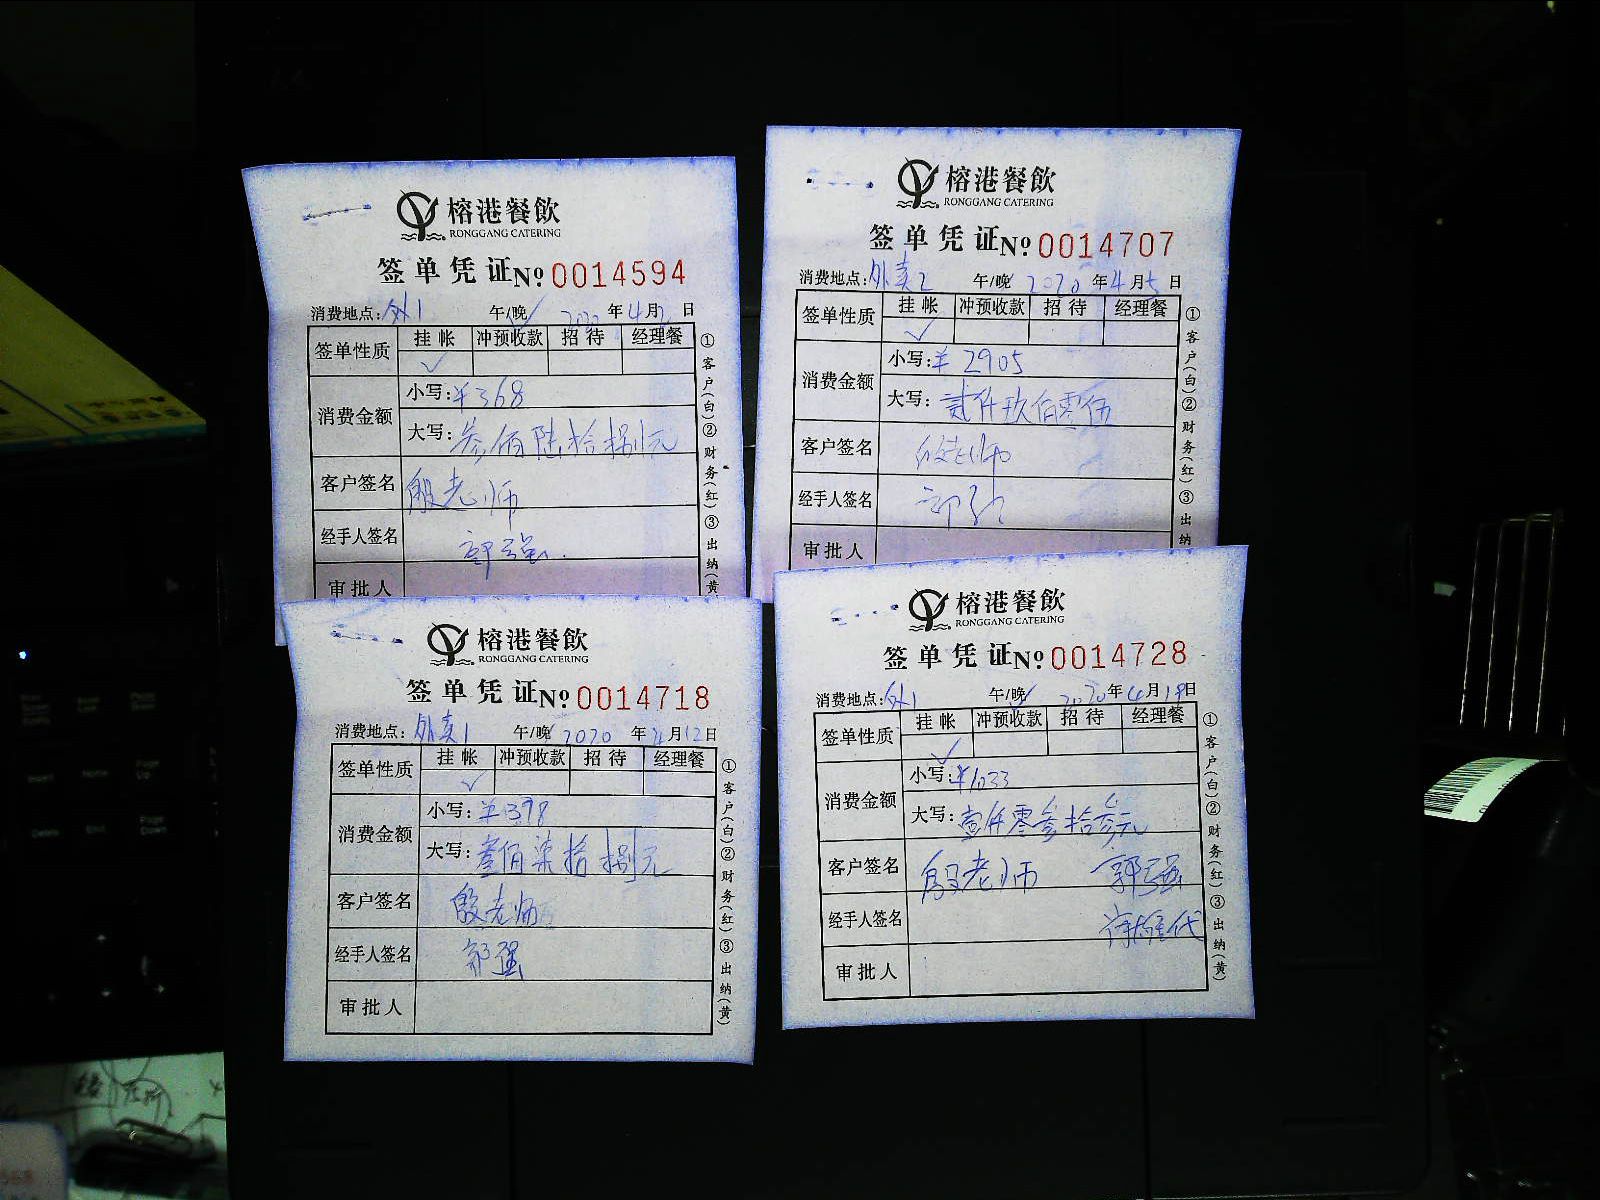 榕港餐飲
RONGGANG CATERING
签单凭证№0014594
消费地点:外1 午/晚 2020年4月2日
签单性质 挂帐 冲预收款 招待 经理餐
✓
消费金额 小写:¥368
大写:叁佰陆拾捌元
客户签名 殷老师
经手人签名 郭强
审批人
①客户(白)②财务(红)③出纳(黄
榕港餐飲
RONGGANG CATERING
签单凭证№0014707
消费地点:外卖2 午/晚 2020年4月5日
签单性质 挂帐 冲预收款 招待 经理餐
✓
消费金额 小写:¥2905
大写:贰仟玖佰零伍
客户签名 殷老师
经手人签名 郭强
审批人
①客户(白)②财务(红)③出纳
榕港餐飲
RONGGANG CATERING
签单凭证№0014718
消费地点:外卖1 午/晚 2020年4月12日
签单性质 挂帐 冲预收款 招待 经理餐
✓
消费金额 小写:¥378
大写:叁佰柒拾捌元
客户签名 殷老师
经手人签名 郭强
审批人
①客户(白)②财务(红)③出纳(黄)
榕港餐飲
RONGGANG CATERING
签单凭证№0014728
消费地点:外1 午/晚 2020年4月19日
签单性质 挂帐 冲预收款 招待 经理餐
✓
消费金额 小写:¥1033
大写:壹仟零叁拾叁元
客户签名 殷老师 郭强
经手人签名 代
审批人
①客户(白)②财务(红)③出纳(黄)